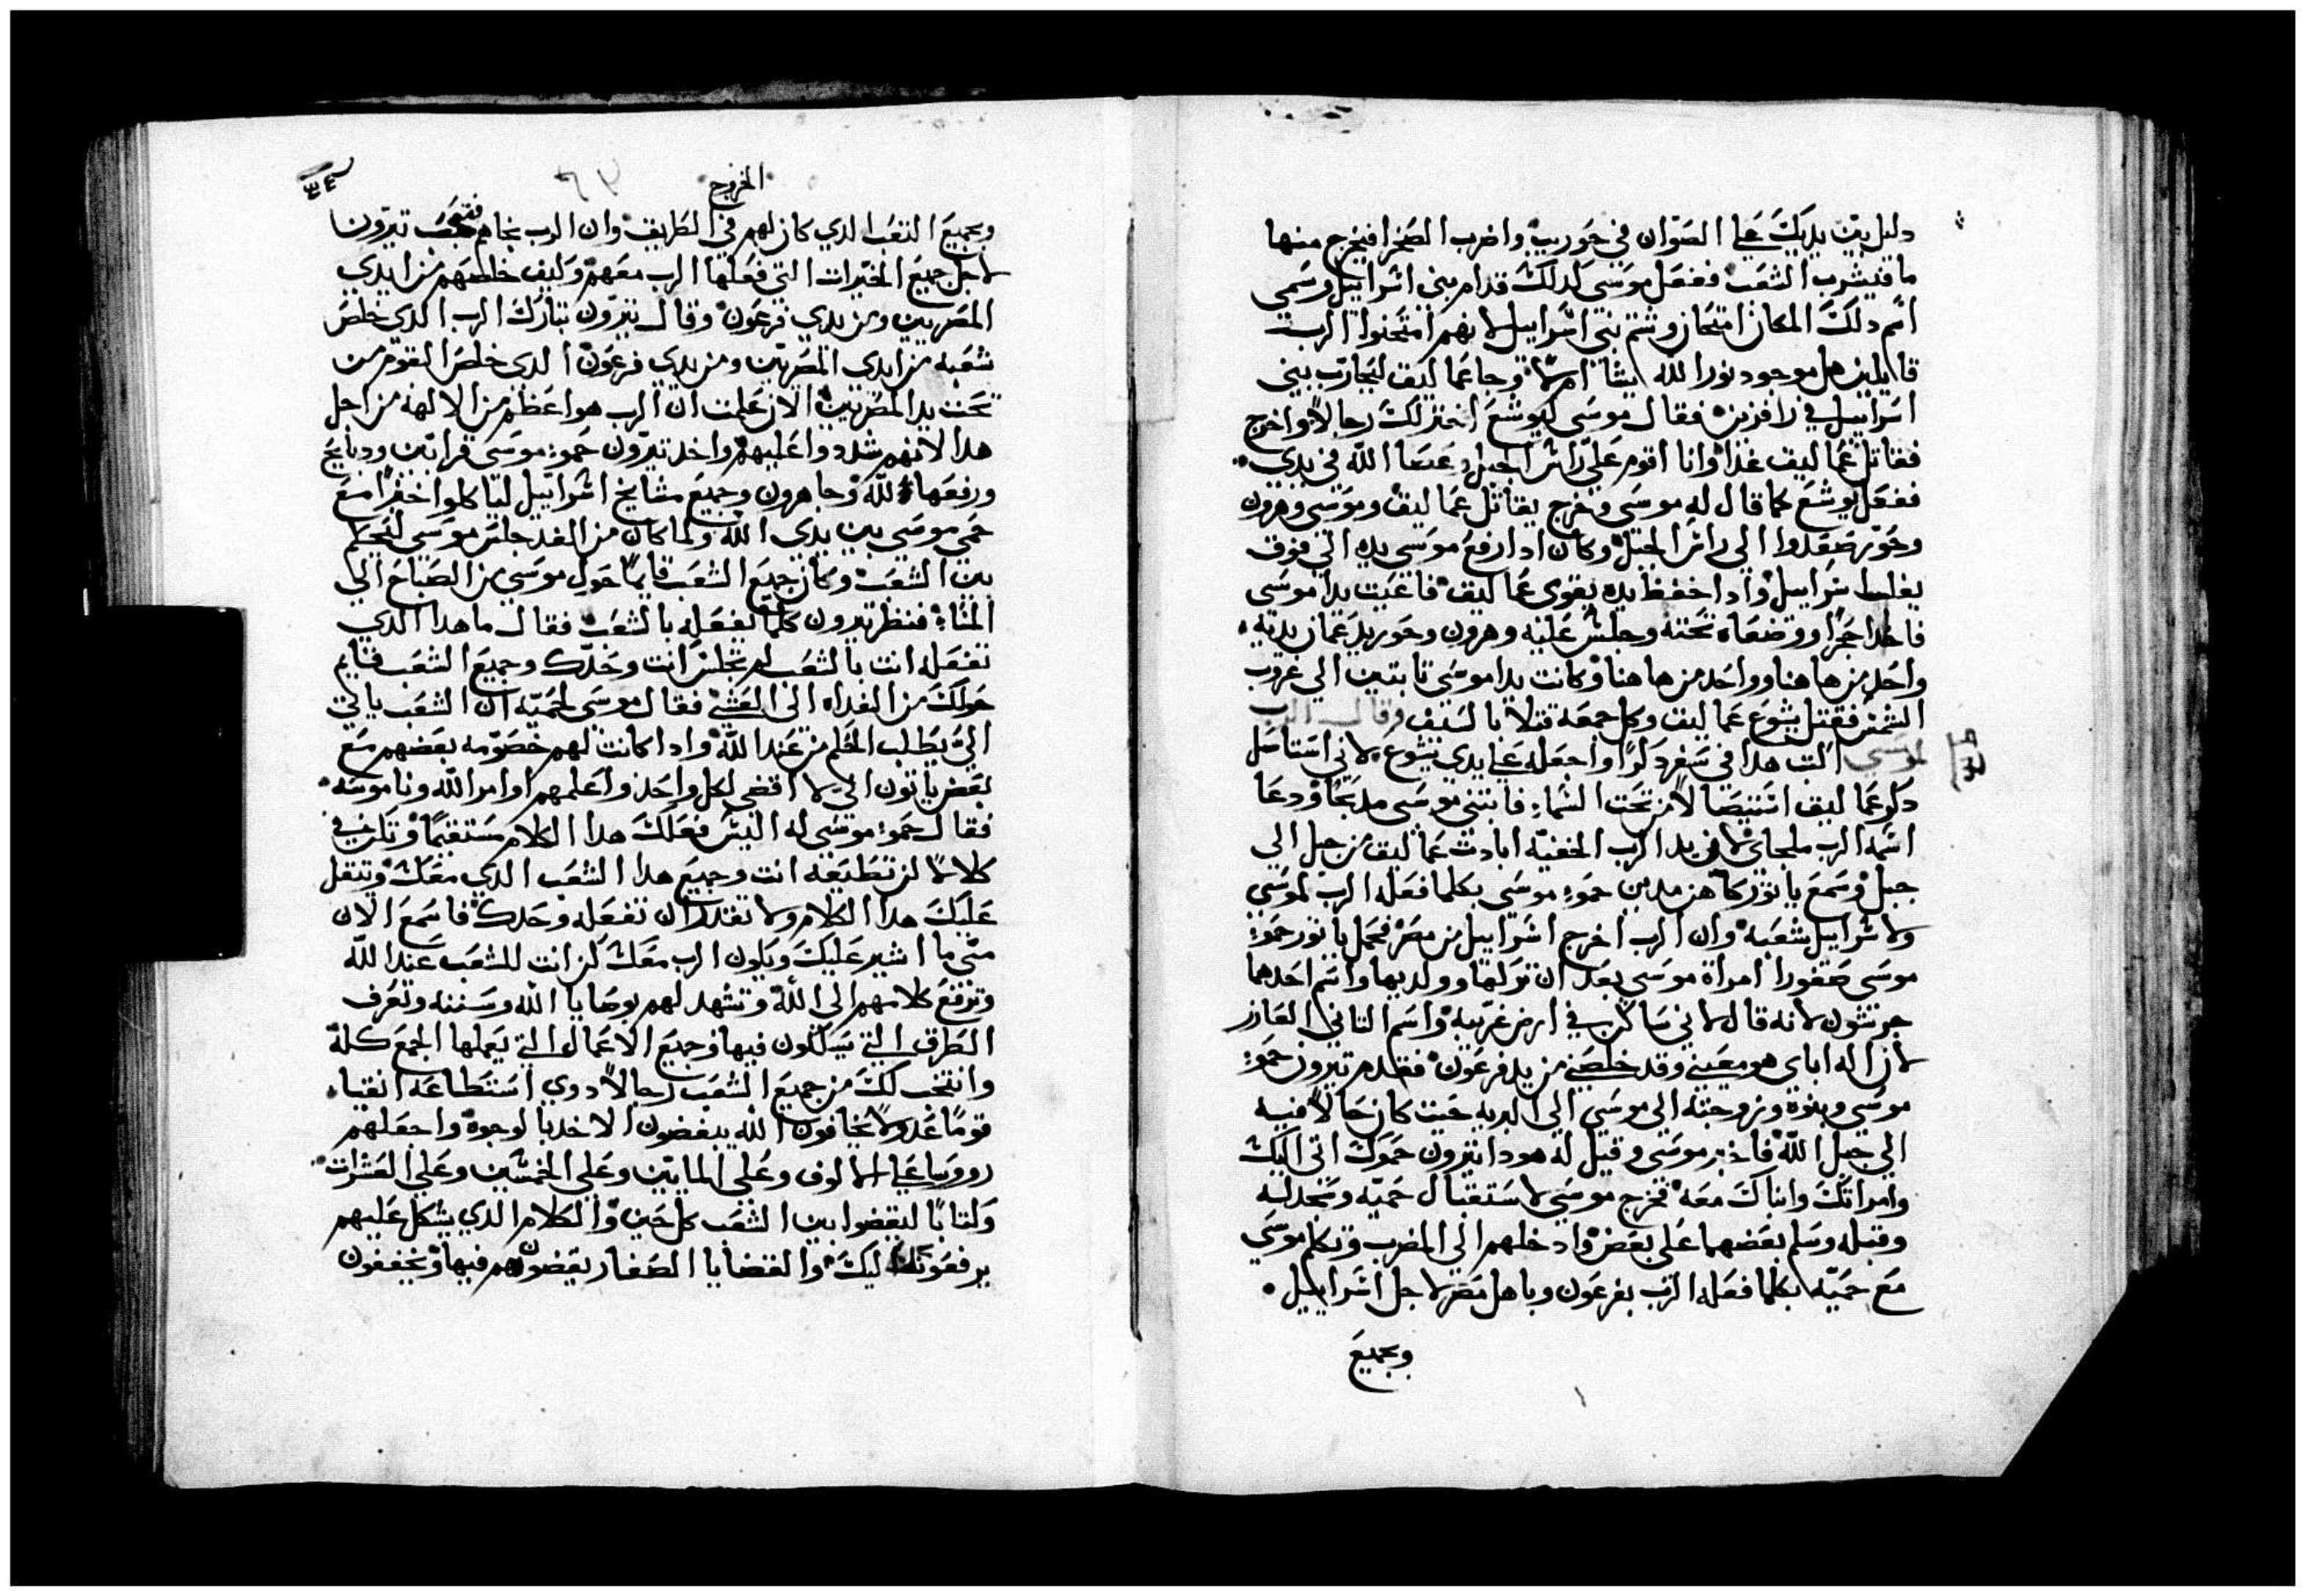 دليل بين يديك علي الصوان في حوريب واضرب الصخرا فيخرج منها
ما فيشرب الشعب ففعل موسي كدلك قدام بني اسراييل وسمي
اسم دلك المكان امتحان وشتم بني اسراييل لانهم امتحنوا الرب
قايلين هل موجود نور الله بيننا ام لا وجا عماليق ليحارب بني
اسراييل في رافزين فقال موسي ليوشع اختر لك رجالا واخرج
فقاتل عماليق غدا وانا اقوم علي راس الجبل وعصا الله في يدي
ففعل يوشع كما قال له موسي وخرج يقاتل عماليق وموسي وهرون
وحور صعدوا الي راس الجبل وكان ادا رفع موسي يده الي فوق
يغلب سراييل وادا اخفظ يده يقوي عماليق فاعيت يدا موسي
فاخدا حجرا ووضعاه تحته وجلس عليه وهرون وحور يدعمان يديه
واحد من هاهنا وواحد من هاهنا وكانت يدا موسي تابتين الي غروب
الشمس فقتل يشوع عماليق وكل جمعه قتلا بالسيف وقال الرب
لموسي اكتب هدا في سفر دكرا واجعله علي يدي يشوع لاني استاصل
دكر عماليق استيصالا من تحت السماء فابتني موسي مدبحا ودعا
اسمه الرب ملجاي لان بيد الرب الخفيه ابادت عماليق من جيل الي
جيل وسمع ياثور كاهن مدين حموء موسي بكلما فعله الرب لموسي
ولاسراييل شعبه وان الرب اخرج اسراييل من مصر فحمل ياثور حموء
موسي صفورا امراة موسي بعد ان تركها وولديها واسم احدهما
جرشون لانه قال لاني ساكن في ارض غريبه واسم التاني العازر
لان اله اباي هو معيني وقد خلصني من يد فرعون فقدم تيرون حموء
موسي وبنوه وزوجته الي موسي الي البريه حيت كان حالا فيه
الي جبل الله فاخبر موسي وقيل له هودا تيرون حموك اتي اليك
وامراتك وابناك معه فخرج موسي لاستقبال حميه وسجد له
وقبله وسلم بعضهما علي بعض وادخلهم الي المضرب وتكلم موسي
مع حميه بكلما فعله الرب بفرعون وباهل مصر لاجل اسراييل
وبجميع
الخروج
وبجميع التعب الدي كان لهم في الطريق وان الرب نجاهم فتعجب تيرون
لاجل جميع الخيرات التي فعلها الرب معهم وكيف خلصهم من ايدي
المصريين ومن يدي فرعون وقال تيرون تبارك الرب الدي خلص
شعبه من ايدي المصريين ومن يدي فرعون الدي خلص القوم من
تحت يد المصريين الان علمت ان الرب هو اعظم من الالهه من اجل
هدا لانهم شددوا عليهم واخد تيرون حموء موسي قرابين ودبايح
ورفعها لله وجا هرون وجميع مشايخ اسراييل لياكلوا خبزا مع
حمي موسي بين يدي الله ولما كان من الغد جلس موسي ليحكم
بين الشعب وكان جميع الشعب قايما حول موسي من الصباح الي
المساء فنظر تيرون كلما يفعله بالشعب فقال ما هدا الدي
تفعله انت بالشعب لم تجلس انت وحدك وجميع الشعب قايم
حولك من الغداه الي العشي فقال موسي لحميه ان الشعب ياتي
الي يطلب الحكم من عند الله وادا كانت لهم خصومه بعضهم مع
بعض ياتون الي لاقضي لكل واحد واعلمهم اوامر الله وناموسه
فقال حموء موسي له اليس فعلك هدا الكلام مستقيما وتكون في
كلالا لن تطيقه انت وجميع هدا الشعب الدي معك وتتقل
عليك هدا الكلام ولا تقدر ان تفعله وحدك فاسمع الان
مني ما اشير عليك ويكون الرب معك كن انت للشعب عند الله
وترفع كلامهم الي الله وتشهد لهم بوصايا الله وسننه وتعرف
الطرق التي يسلكون فيها وجميع الاعمال التي يعملها الجمع كله
وانتخب لك من جميع الشعب رجالا دوي استطاعه اتقياء
قوما عدولا يخافون الله يبغضون الاخد بالوجوه واجعلهم
رووسا علي الالوف وعلي المايين وعلي الخمسين وعلي العشرات
وكتابا ليقضوا بين الشعب كل حين والكلام الدي يشكل عليهم
يرفعونه اليك والقضايا الصغار يقضون هم فيها ويخففون